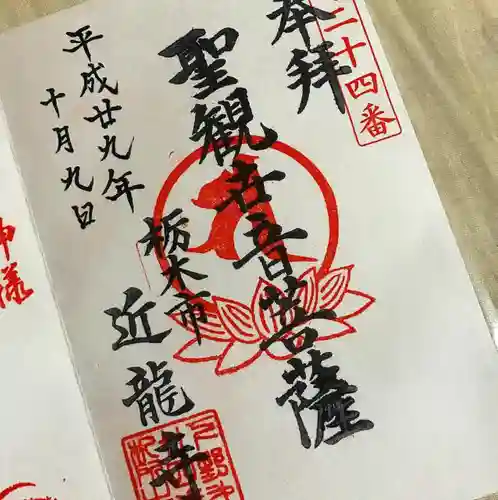 二十四番
奉拝
聖観世音菩薩
栃木市
近龍寺
平成廿九年
十月九日
神様